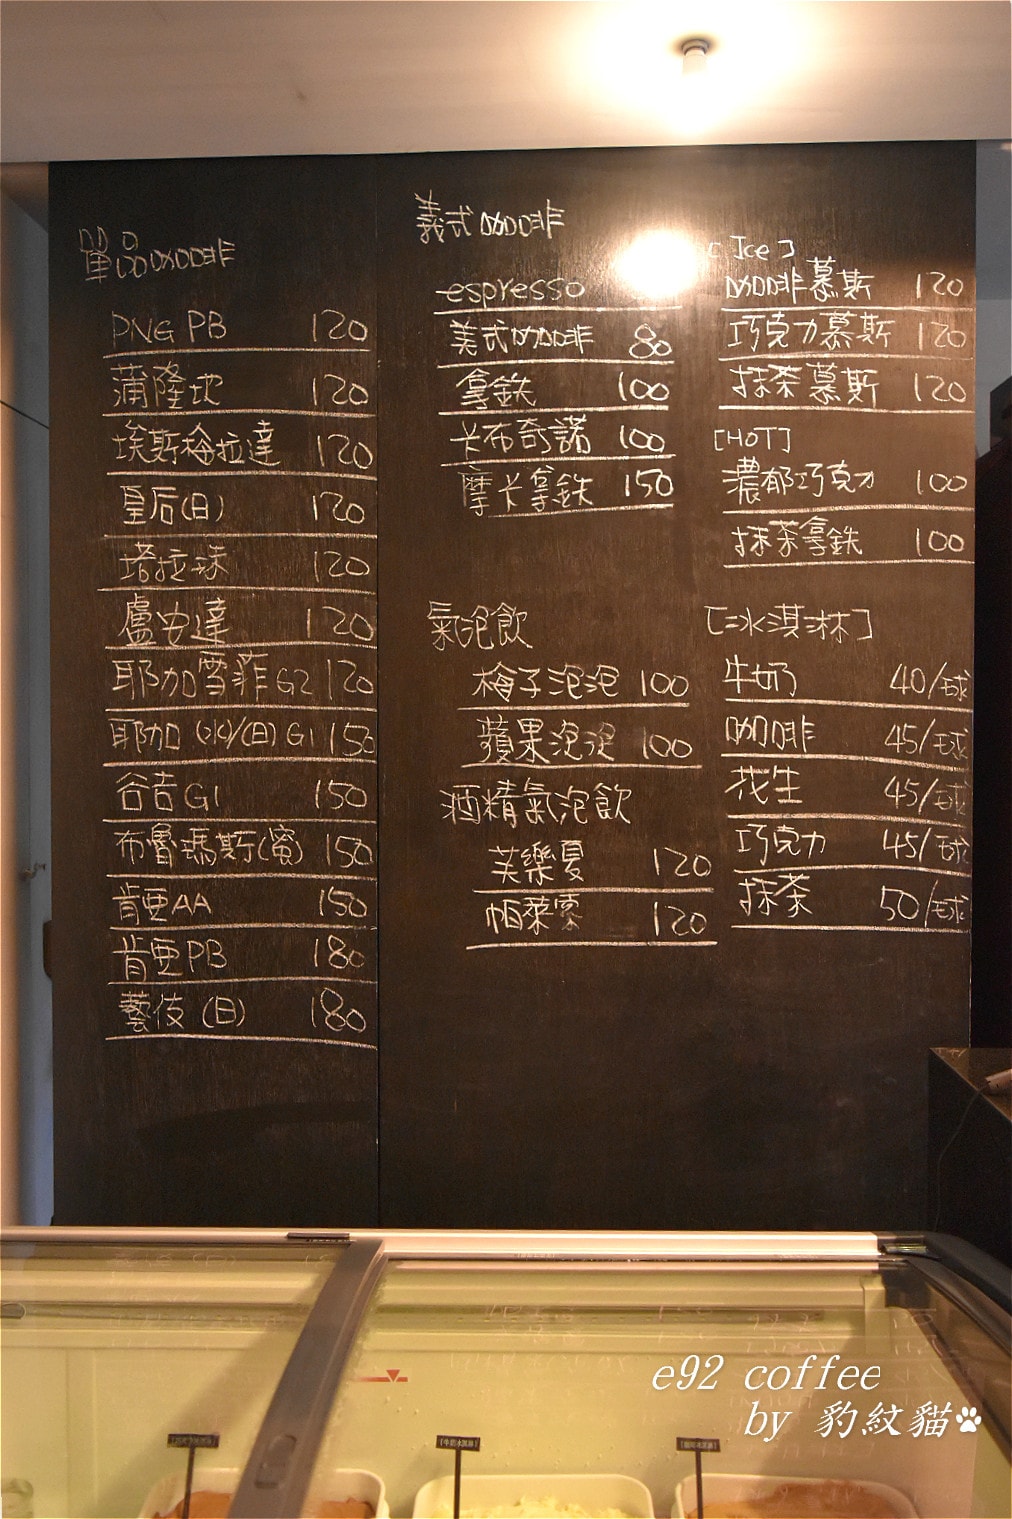 單品咖啡
PNG PB 120
蒲隆地 120
埃斯梅拉達 120
皇后(日) 120
塔拉珠 120
盧安達 120
耶加雪菲 G2 120
耶加 (水)/(日) G1 150
谷吉 G1 150
布魯瑪斯(蜜) 150
肯亞AA 150
肯亞PB 180
藝伎 (日) 180
義式咖啡
espresso
美式咖啡 80
拿鉄 100
卡布奇諾 100
摩卡拿鉄 150
氣泡飲
梅子泡泡 100
蘋果泡泡 100
酒精氣泡飲
芙樂夏 120
帕萊索 120
[Ice]
咖啡慕斯 120
巧克力慕斯 120
抹茶慕斯 120
[HOT]
濃郁巧克力 100
抹茶拿鉄 100
[冰淇淋]
牛奶 40/球
咖啡 45/球
花生 45/球
巧克力 45/球
抹茶 50/球
e92 coffee
by 豹紋貓